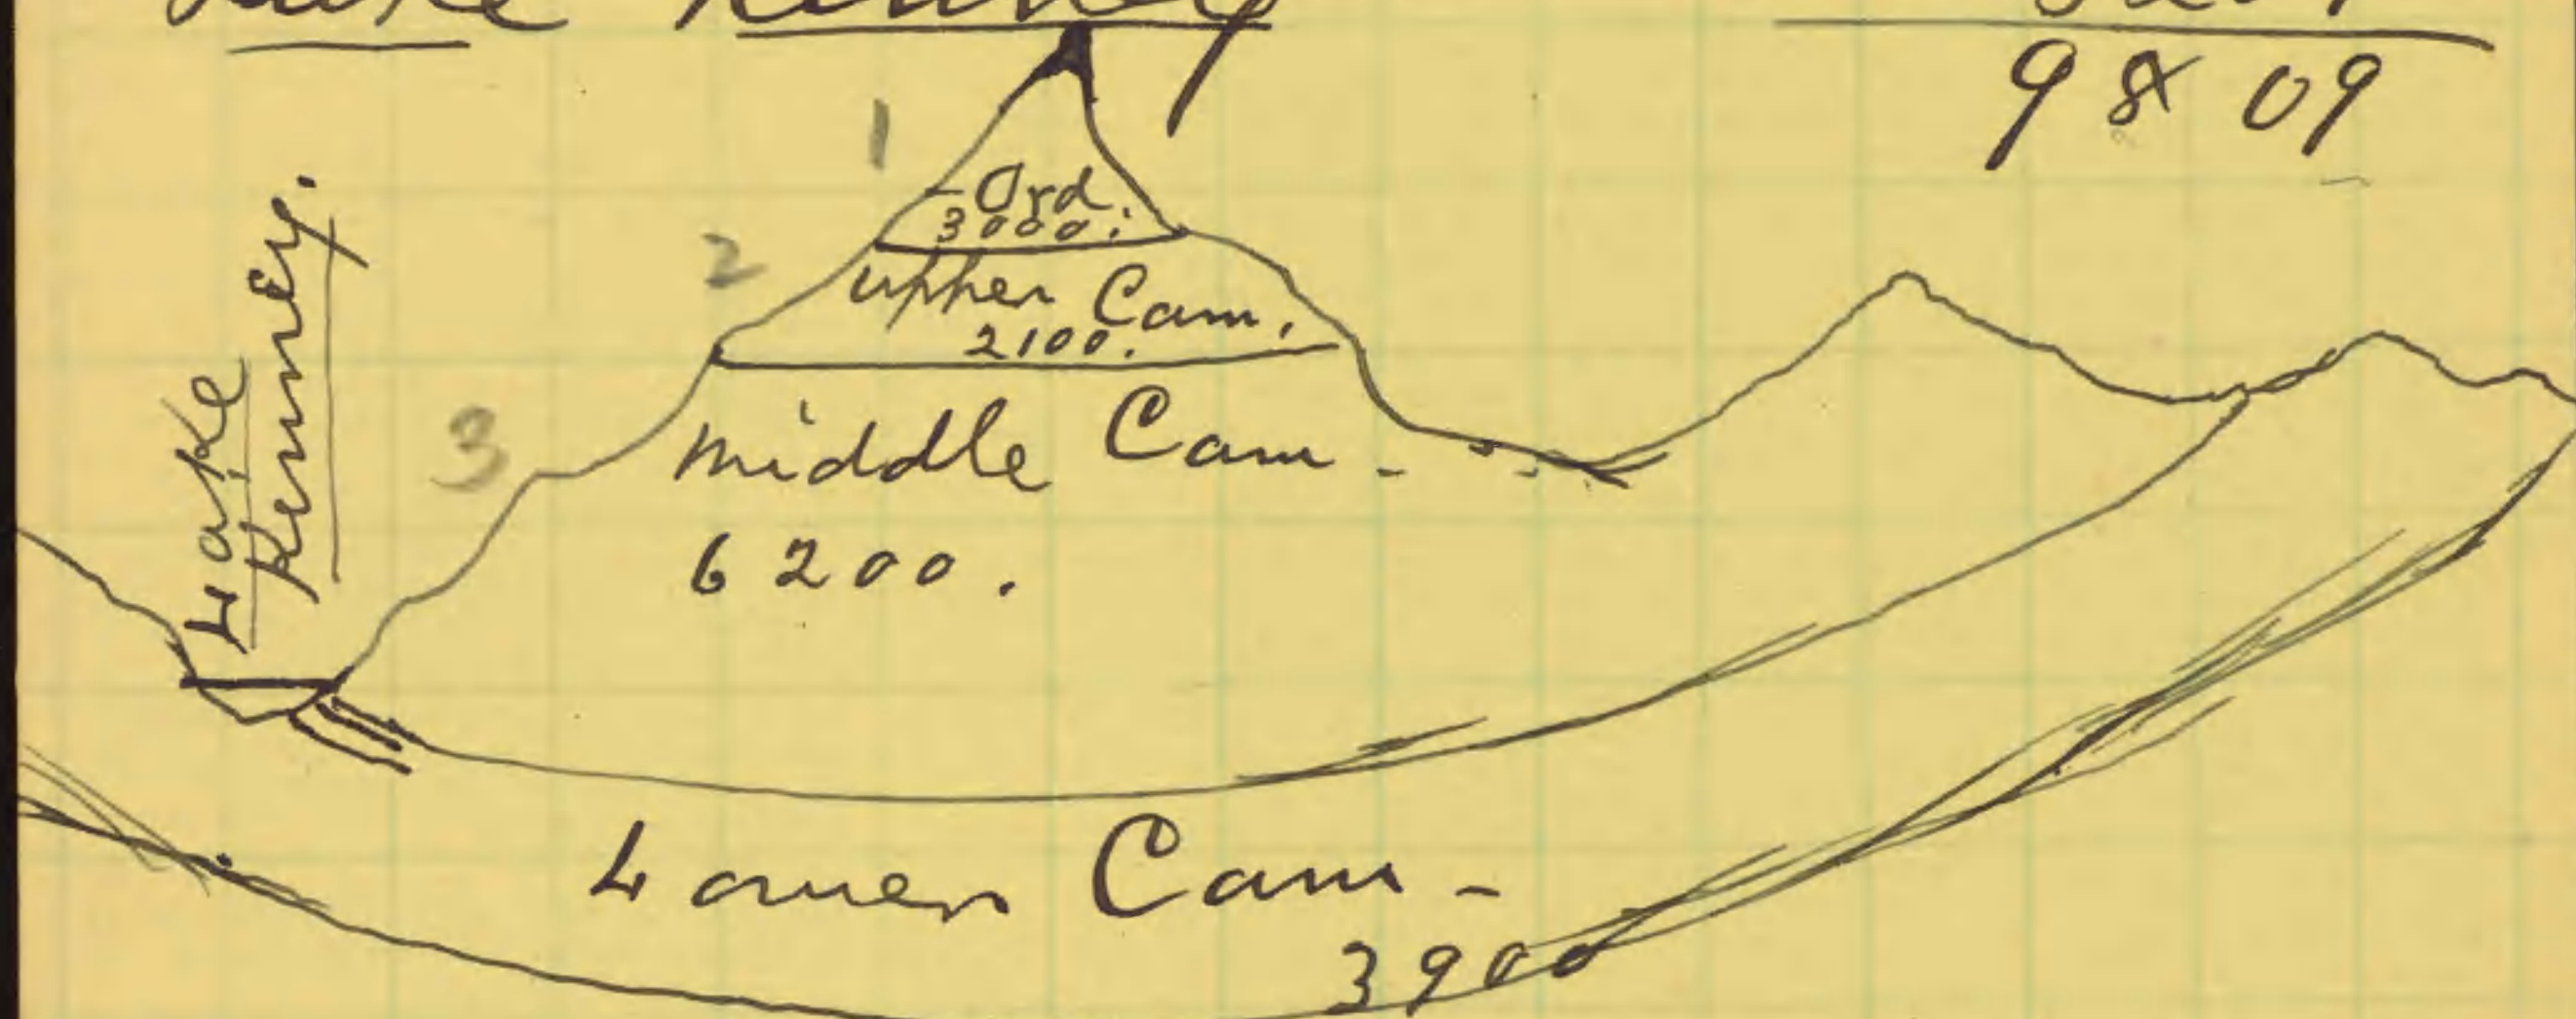 Lake Kinney
9809
1
Ord.
3000.
2
upper Cam.
2100.
Lake
Kinney.
3
Middle Cam -
6200.
Lower Cam -
3900